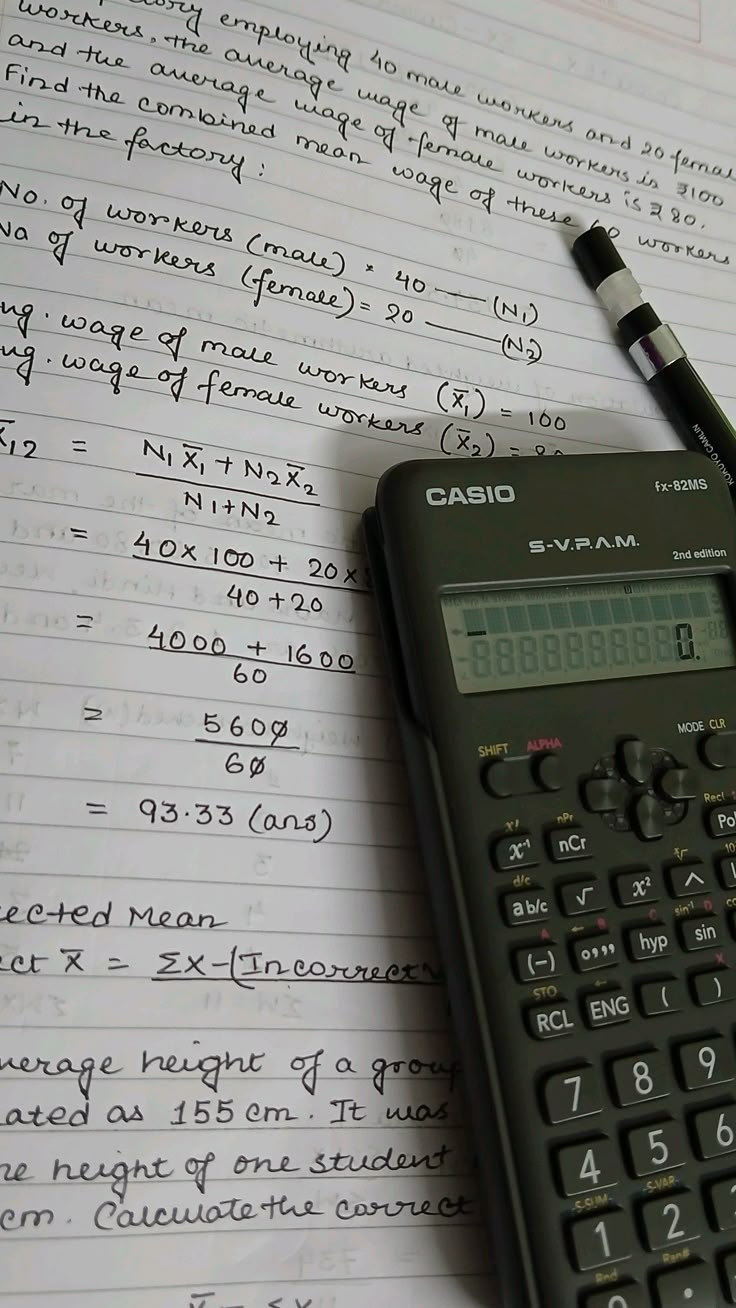 employing 40 male workers and 20 femal
workers. the average wage of male workers is ₹100
and the average wage of female workers is ₹80.
Find the combined mean wage of these 60 workers
in the factory:
No. of workers (male) = 40 — (N1)
No of workers (female) = 20 — (N2)
ug. wage of male workers (X̄1) = 100
ug. wage of female workers (X̄2) = 80
X̄12 = N1X̄1 + N2X̄2
N1+N2
= 40 x 100 + 20 x
40 + 20
= 4000 + 1600
60
= 5600
60
= 93.33 (ans)
ected Mean
ect X̄ = ΣX-(Incorrect
verage height of a group
ated as 155 cm. It was
he height of one student
cm. Calculate the correct
KOKUYO CAMLIN
CASIO fx-82MS
S-V.P.A.M.
2nd edition
0.
SHIFT ALPHA MODE CLR
x! nPr Rec(
x⁻¹ nCr Pol
d/c
ab/c √ x² ^
sin⁻¹ D
(-) o,,, hyp sin
STO
RCL ENG ( )
7 8 9
4 5 6
S-SUM S-VAR
1 2
Rnd Ran#